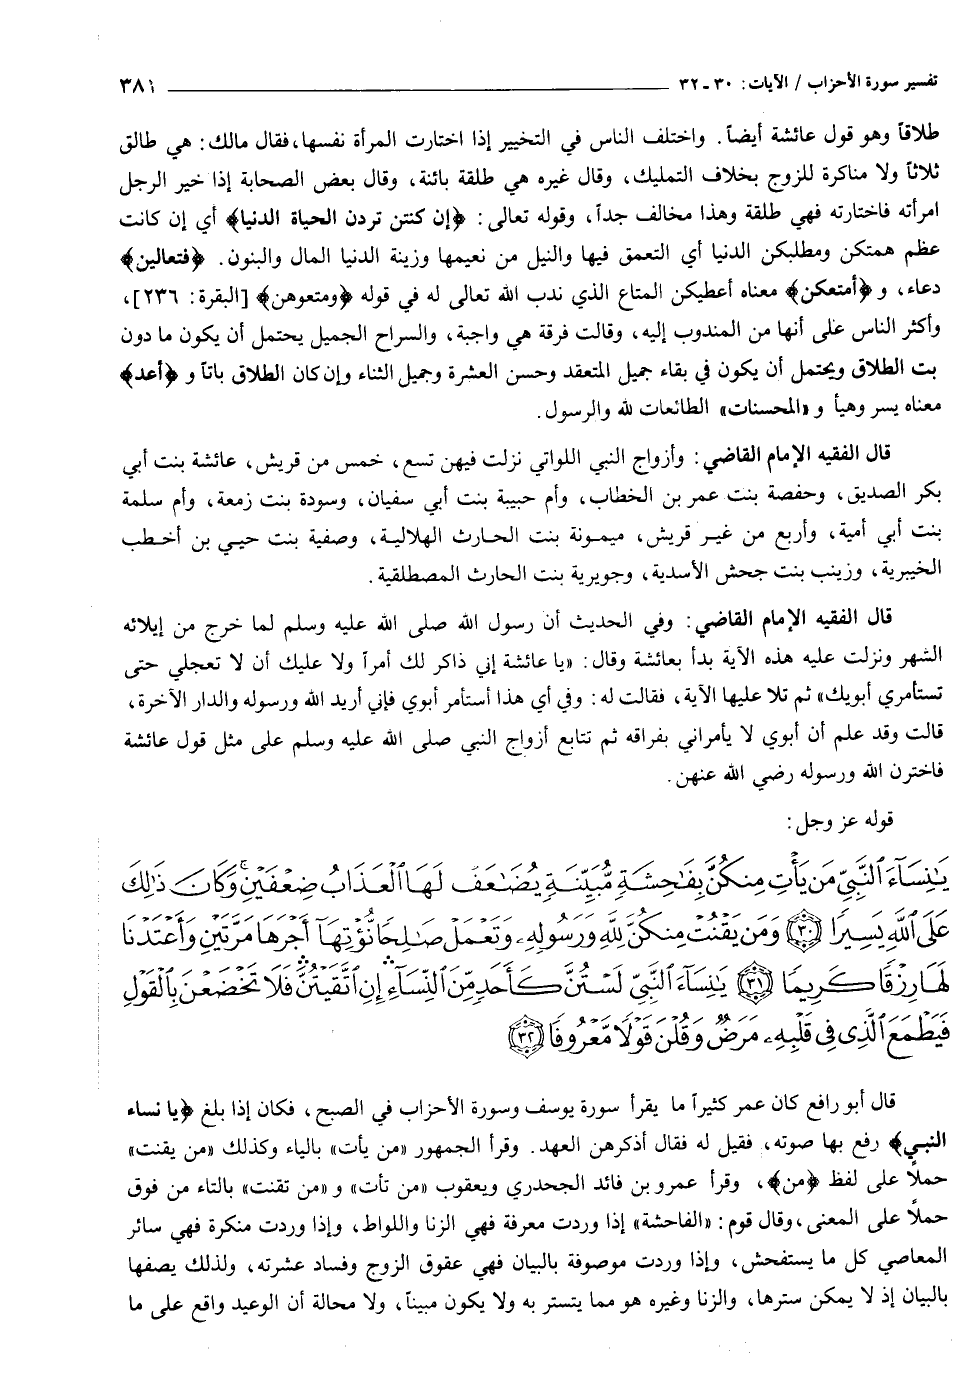 تفسير سورة الأحزاب / الآيات: ٣٠ ـ ٣٢ ٣٨١
طلاقاً وهو قول عائشة أيضاً. واختلف الناس في التخيير إذا اختارت المرأة نفسها، فقال مالك: هي طالق
ثلاثاً ولا مناكرة للزوج بخلاف التمليك، وقال غيره هي طلقة بائنة، وقال بعض الصحابة إذا خير الرجل
امرأته فاختارته فهي طلقة وهذا مخالف جداً، وقوله تعالى: ﴿إن كنتن تردن الحياة الدنيا﴾ أي إن كانت
عظم همتكن ومطلبكن الدنيا أي التعمق فيها والنيل من نعيمها وزينة الدنيا المال والبنون. ﴿فتعالين﴾
دعاء، و ﴿أمتعكن﴾ معناه أعطيكن المتاع الذي ندب الله تعالى له في قوله ﴿ومتعوهن﴾ [البقرة: ٢٣٦]،
وأكثر الناس على أنها من المندوب إليه، وقالت فرقة هي واجبة، والسراح الجميل يحتمل أن يكون ما دون
بت الطلاق ويحتمل أن يكون في بقاء جميل المتعقد وحسن العشرة وجميل الثناء وإن كان الطلاق باتاً و ﴿أعد﴾
معناه يسر وهيأ و «المحسنات» الطائعات لله والرسول.
قال الفقيه الإمام القاضي: وأزواج النبي اللواتي نزلت فيهن تسع، خمس من قريش، عائشة بنت أبي
بكر الصديق، وحفصة بنت عمر بن الخطاب، وأم حبيبة بنت أبي سفيان، وسودة بنت زمعة، وأم سلمة
بنت أبي أمية، وأربع من غير قريش، ميمونة بنت الحارث الهلالية، وصفية بنت حيي بن أخطب
الخيبرية، وزينب بنت جحش الأسدية، وجويرية بنت الحارث المصطلقية.
قال الفقيه الإمام القاضي: وفي الحديث أن رسول الله صلى الله عليه وسلم لما خرج من إيلائه
الشهر ونزلت عليه هذه الآية بدأ بعائشة وقال: «يا عائشة إني ذاكر لك أمراً ولا عليك أن لا تعجلي حتى
تستأمري أبويك» ثم تلا عليها الآية، فقالت له: وفي أي هذا أستأمر أبوي فإني أريد الله ورسوله والدار الآخرة،
قالت وقد علم أن أبوي لا يأمراني بفراقه ثم تتابع أزواج النبي صلى الله عليه وسلم على مثل قول عائشة
فاخترن الله ورسوله رضي الله عنهن.
قوله عز وجل:
يَٰنِسَآءَ ٱلنَّبِيِّ مَن يَأۡتِ مِنكُنَّ بِفَٰحِشَةٖ مُّبَيِّنَةٖ يُضَٰعَفۡ لَهَا ٱلۡعَذَابُ ضِعۡفَيۡنِۚ وَكَانَ ذَٰلِكَ
عَلَى ٱللَّهِ يَسِيرٗا ٣٠ وَمَن يَقۡنُتۡ مِنكُنَّ لِلَّهِ وَرَسُولِهِۦ وَتَعۡمَلۡ صَٰلِحٗا نُّؤۡتِهَآ أَجۡرَهَا مَرَّتَيۡنِ وَأَعۡتَدۡنَا
لَهَا رِزۡقٗا كَرِيمٗا ٣١ يَٰنِسَآءَ ٱلنَّبِيِّ لَسۡتُنَّ كَأَحَدٖ مِّنَ ٱلنِّسَآءِ إِنِ ٱتَّقَيۡتُنَّ فَلَا تَخۡضَعۡنَ بِٱلۡقَوۡلِ
فَيَطۡمَعَ ٱلَّذِي فِي قَلۡبِهِۦ مَرَضٞ وَقُلۡنَ قَوۡلٗا مَّعۡرُوفٗا ٣٢
قال أبو رافع كان عمر كثيراً ما يقرأ سورة يوسف وسورة الأحزاب في الصبح، فكان إذا بلغ ﴿يا نساء
النبي﴾ رفع بها صوته، فقيل له فقال أذكرهن العهد. وقرأ الجمهور «من يأت» بالياء وكذلك «من يقنت»
حملاً على لفظ ﴿من﴾، وقرأ عمرو بن فائد الجحدري ويعقوب «من تأت» و «من تقنت» بالتاء من فوق
حملاً على المعنى، وقال قوم: «الفاحشة» إذا وردت معرفة فهي الزنا واللواط، وإذا وردت منكرة فهي سائر
المعاصي كل ما يستفحش، وإذا وردت موصوفة بالبيان فهي عقوق الزوج وفساد عشرته، ولذلك يصفها
بالبيان إذ لا يمكن سترها، والزنا وغيره هو مما يتستر به ولا يكون مبيناً، ولا محالة أن الوعيد واقع على ما